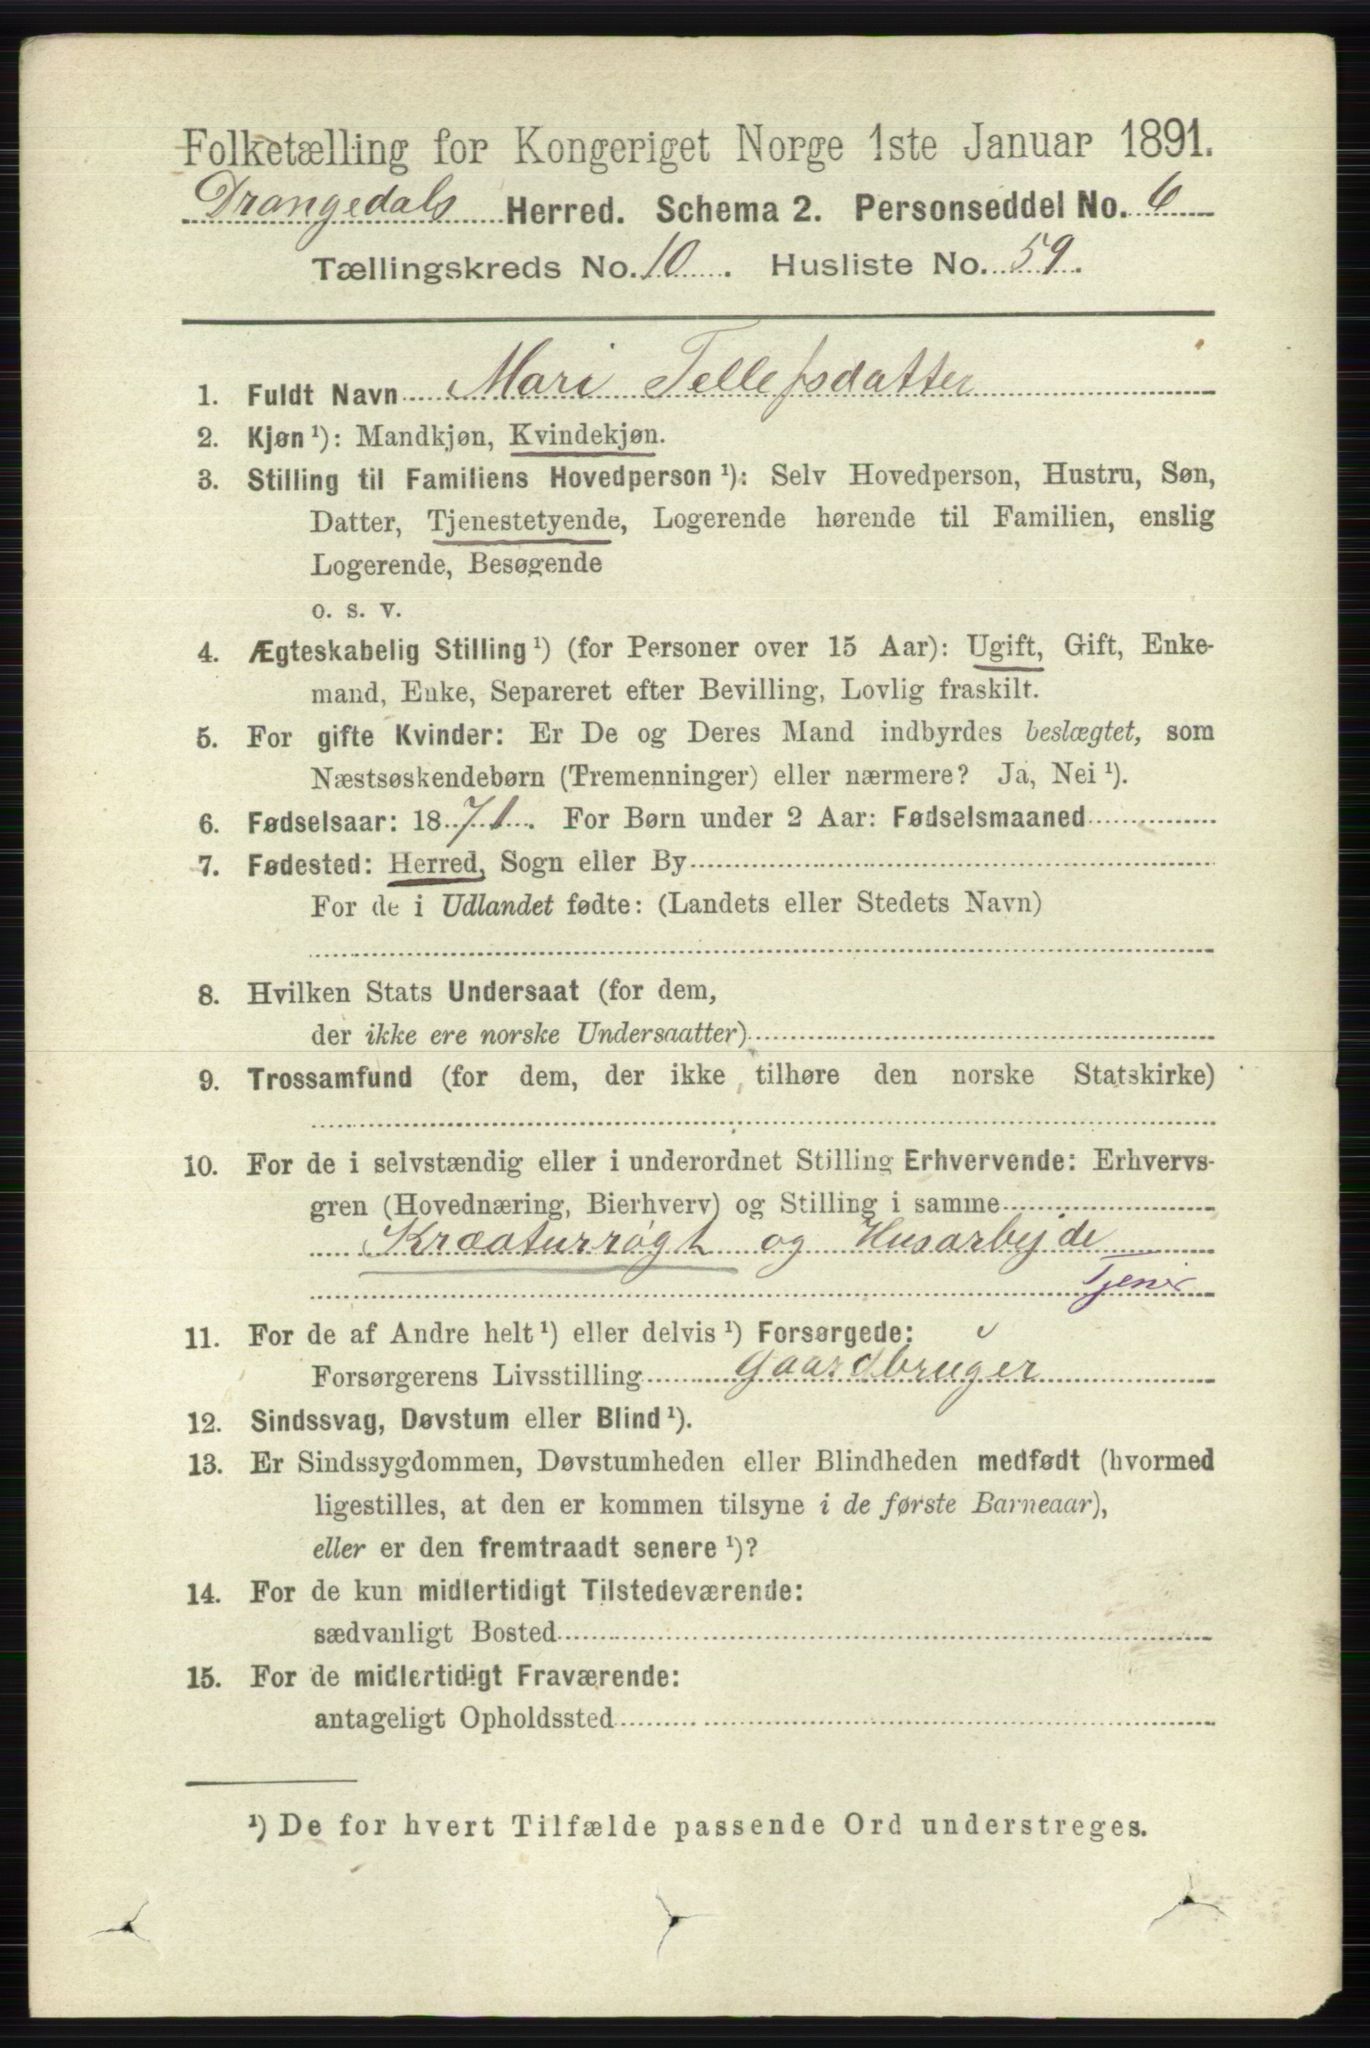 Folketælling for Kongeriget Norge 1ste Januar 1891.
Drangedals Herred. Schema 2. Personseddel No. 6
Tællingskreds No. 10. Husliste No. 59.
1. Fuldt Navn Mari Tellefsdatter
2. Kjøn ¹): Mandkjøn, Kvindekjøn.
3. Stilling til Familiens Hovedperson ¹): Selv Hovedperson, Hustru, Søn,
Datter, Tjenestetyende, Logerende hørende til Familien, enslig
Logerende, Besøgende
o. s. v.
4. Ægteskabelig Stilling ¹) (for Personer over 15 Aar): Ugift, Gift, Enke-
mand, Enke, Separeret efter Bevilling, Lovlig fraskilt.
5. For gifte Kvinder: Er De og Deres Mand indbyrdes beslægtet, som
Næstsøskendebørn (Tremenninger) eller nærmere? Ja, Nei ¹).
6. Fødselsaar: 1871. For Børn under 2 Aar: Fødselsmaaned
7. Fødested: Herred, Sogn eller By
For de i Udlandet fødte: (Landets eller Stedets Navn)
8. Hvilken Stats Undersaat (for dem,
der ikke ere norske Undersaatter)
9. Trossamfund (for dem, der ikke tilhøre den norske Statskirke)
10. For de i selvstændig eller i underordnet Stilling Erhvervende: Erhvervs-
gren (Hovednæring, Bierhverv) og Stilling i samme
Kreaturrøgt og Husarbejde
Tjener
11. For de af Andre helt ¹) eller delvis ¹) Forsørgede:
Forsørgerens Livsstilling Gaardbruger
12. Sindssvag, Døvstum eller Blind ¹).
13. Er Sindssygdommen, Døvstumheden eller Blindheden medfødt (hvormed
ligestilles, at den er kommen tilsyne i de første Barneaar),
eller er den fremtraadt senere ¹)?
14. For de kun midlertidigt Tilstedeværende:
sædvanligt Bosted
15. For de midlertidigt Fraværende:
antageligt Opholdssted
¹) De for hvert Tilfælde passende Ord understreges.